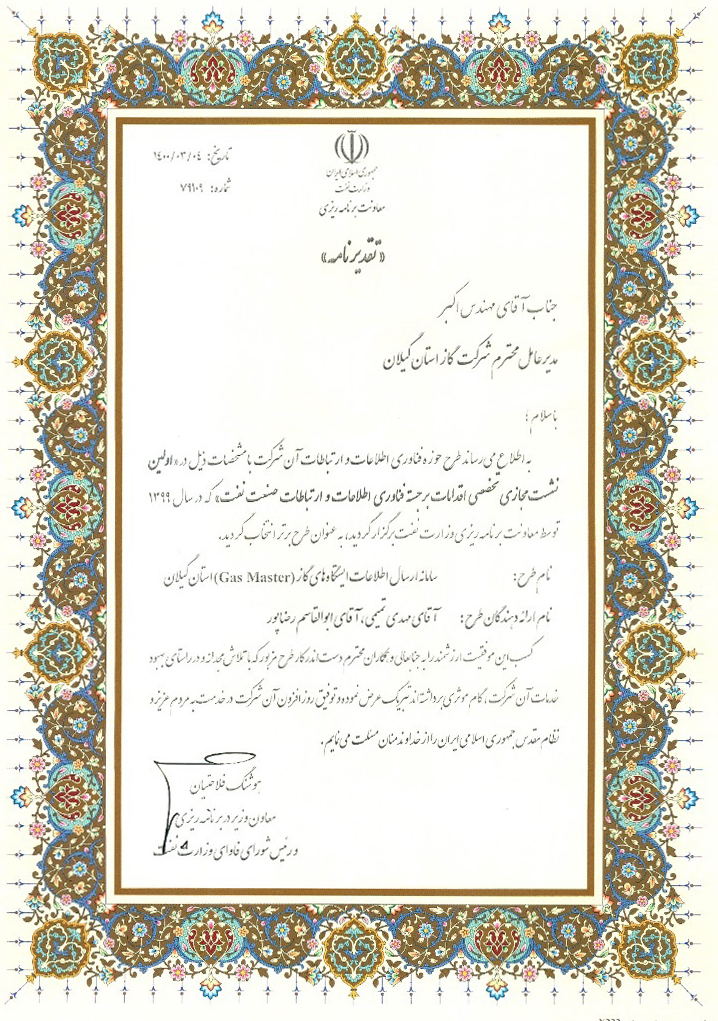 جمهوری اسلامی ایران
وزارت نفت
معاونت برنامه ریزی
تاریخ: ۱۴۰۰/۰۳/۰۴
شماره: ۷۹۱۰۹
«تقدیرنامه»
جناب آقای مهندس اکبر
مدیرعامل محترم شرکت گاز استان گیلان
با سلام ؛
به اطلاع می‌رساند طرح حوزه فناوری اطلاعات و ارتباطات آن شرکت با مشخصات ذیل در «اولین
نشست مجازی تخصصی اقدامات برجسته فناوری اطلاعات و ارتباطات صنعت نفت» که در سال ۱۳۹۹
توسط معاونت برنامه ریزی وزارت نفت برگزار گردید، به عنوان طرح برتر انتخاب گردید.
نام طرح: سامانه ارسال اطلاعات ایستگاه‌های گاز (Gas Master) استان گیلان
نام ارائه دهندگان طرح: آقای مهدی تمیمی، آقای ابوالقاسم رضاپور
کسب این موفقیت ارزشمند را به جنابعالی و همکاران محترم دست اندرکار طرح مزبور که با تلاش مجدانه و در راستای بهبود
خدمات آن شرکت، گام موثری برداشته‌اند تبریک عرض نموده و توفیق روزافزون آن شرکت در خدمت به مردم عزیز و
نظام مقدس جمهوری اسلامی ایران را از خداوند منان مسئلت می‌نمایم.
هوشنگ فلاحتیان
معاون وزیر در برنامه ریزی
و رئیس شورای فاوای وزارت نفت